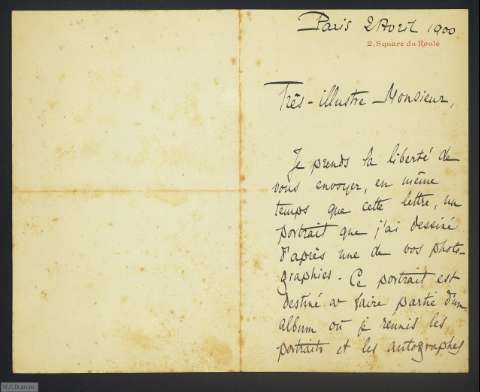 Paris 2 Avril 1900
2, Square du Roule
Très-illustre Monsieur,
Je prends la liberté de
vous envoyer, en même
temps que cette lettre, un
portrait que j'ai dessiné
d'après une de vos photo-
graphies. Ce portrait est
destiné à faire partie d'un
album où je réunis les
portraits et les autographes